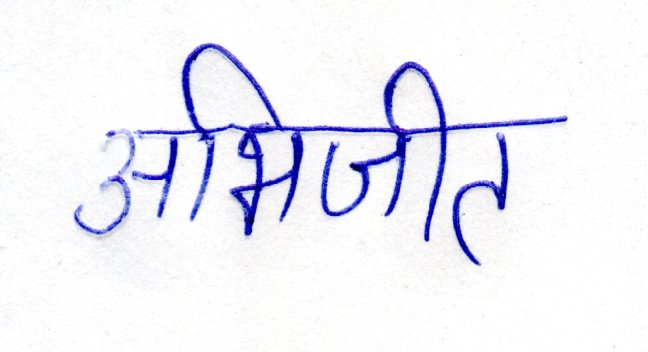 अभिजीत